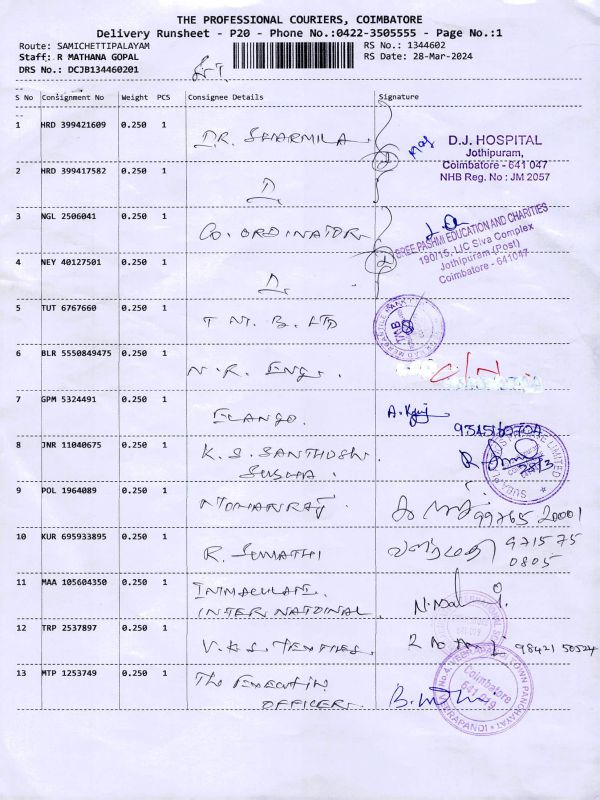 THE PROFESSIONAL COURIERS, COIMBATORE
Delivery Runsheet - P20 - Phone No.:0422-3505555 - Page No.:1
Route: SAMICHETTIPALAYAM
RS No.: 1344602
Staff: R MATHANA GOPAL
RS Date: 28-Mar-2024
DRS No.: DCJB134460201
S No Consignment No Weight PCS Consignee Details Signature
1 HRD 399421609 0.250 1 DR. SHARMILA
D.J. HOSPITAL
Jothipuram,
Coimbatore - 641 047
NHB Reg. No : JM 2057
2 HRD 399417582 0.250 1
3 NGL 2506041 0.250 1 CO.ORDINATOR
SREE PASHMI EDUCATION AND CHARITIES
190/15, LIC Siva Complex
Jothipuram (Post)
Coimbatore - 641047
4 NEY 40127501 0.250 1
5 TUT 6767660 0.250 1 T NT. B. LTD
6 BLR 5550849475 0.250 1 N.R. ENGG.
7 GPM 5324491 0.250 1 ELANGO.
8 JNR 11040675 0.250 1 K. S. SANTHOSH
28/3
9 POL 1964089 0.250 1 99765 20001
10 KUR 695933895 0.250 1 R. SUMATHI
971575
0805
11 MAA 105604350 0.250 1 IMMACULATE
INTERNATIONAL
12 TRP 2537897 0.250 1 V.K.S. TEXTILES.
98421 50524
13 MTP 1253749 0.250 1 The EXECUTIVE
OFFICER
Coimbatore
641 019